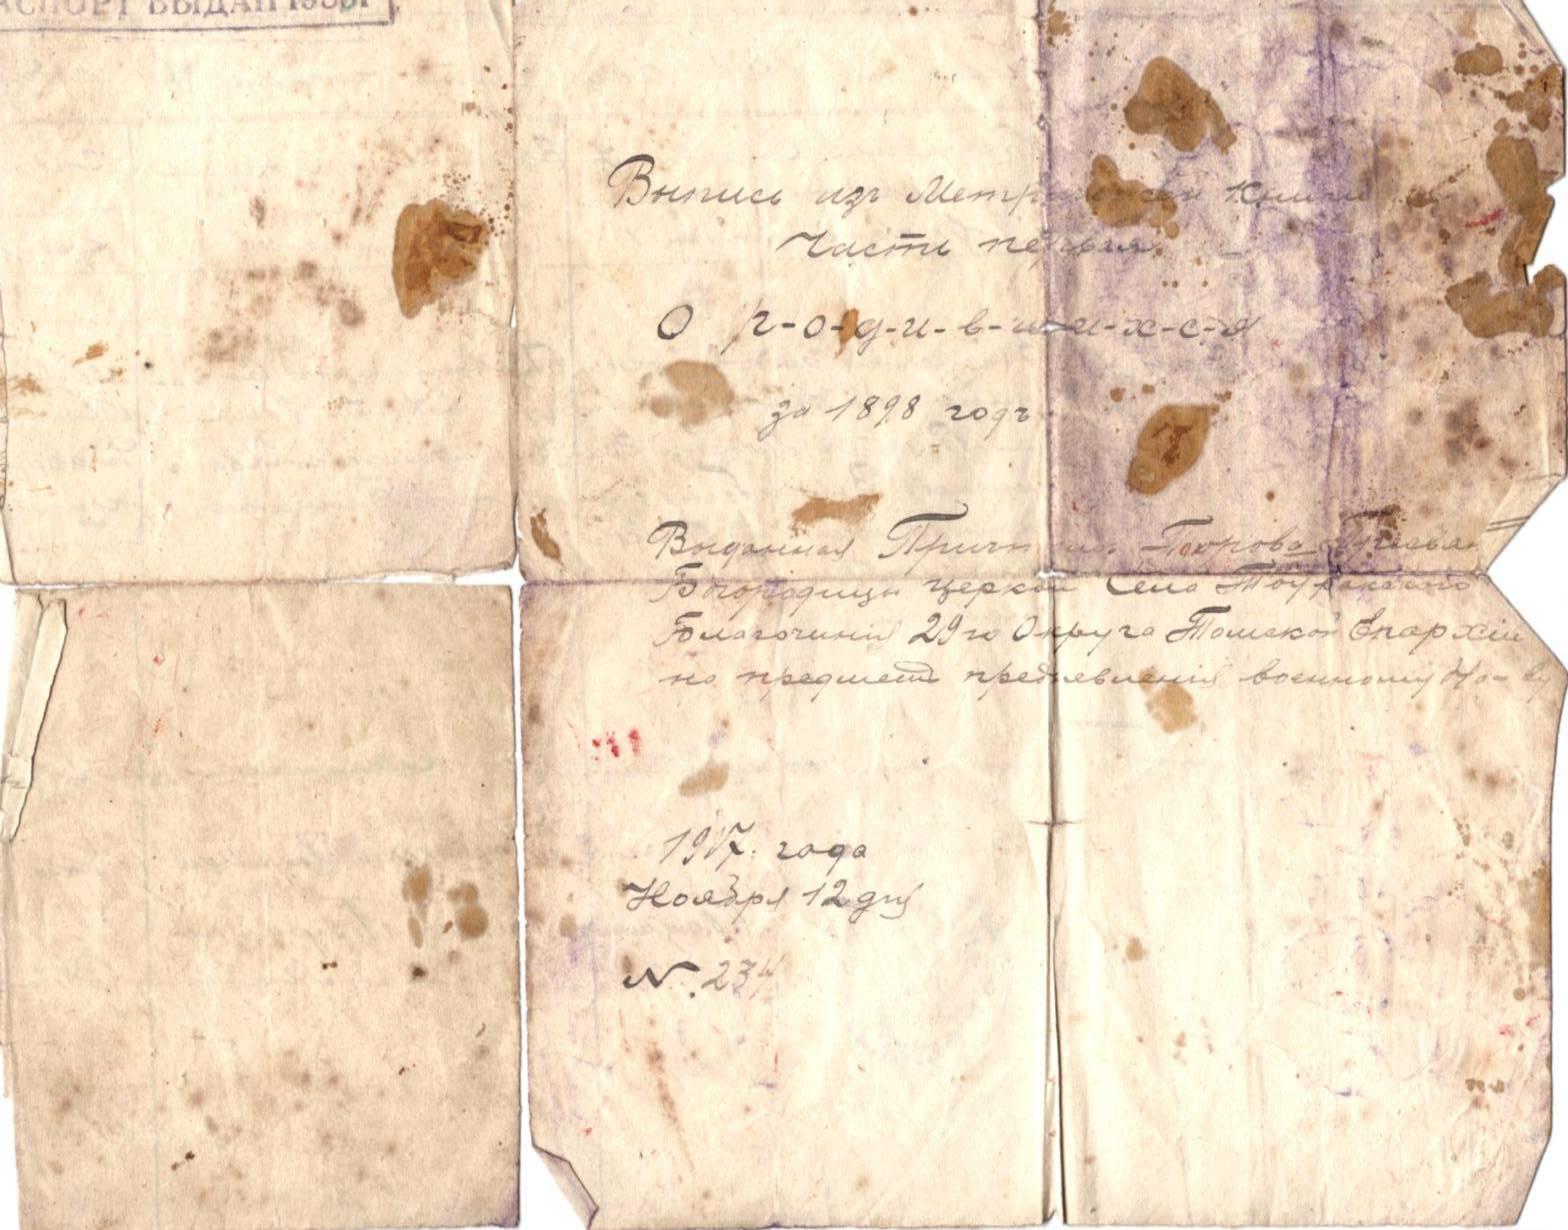 ПАСПОРТ ВЫДАН 193
Выпись изъ Метрической книги
Часть первая
О р-о-д-и-в-ш-и-х-с-я
за 1898 годъ
Выданная Причтомъ Покрово
Богородицы церкви Села
Благочинія 29го Округа Томской Епархіи
на предметъ предъявленія военному
1917. года
Ноября 12 дня
N. 234